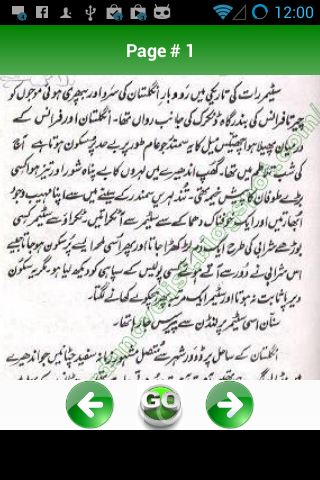 12:00
Page # 1
سٹیمر رات کی تاریکی میں رودبارِ انگلستان کی سرد اور بپھری ہوئی موجوں کو
چیرتا فرانس کی بندرگاہ ڈنکرک کی جانب رواں تھا۔ انگلستان اور فرانس کے
درمیان پھیلا ہوا چھبیس میل کا یہ سمندر جو عام طور پر بے حد پُرسکون ہوتا ہے آج
کی شب تلاطم میں تھا۔ گھپ اندھیرے میں لہروں کا بے پناہ شور اور تیز ہوا کسی
بڑے طوفان کا پیش خیمہ تھی۔ تُند لہریں سمندر کے سینے میں سے اپنا مہیب وجود
اُبھارتیں اور ایک خوفناک دھماکے سے سٹیمر سے آ ٹکراتیں ٹکراؤ سے سٹیمر کسی
بوڑھے شرابی کی طرح ایک دم لڑکھڑا جاتا اور پھر اُسی لمحے ایسے پُرسکون ہو جاتا جیسے
اس شرابی نے دُور سے آتے ہوئے کسی پولیس کے سپاہی کو دیکھ لیا ہو۔ مگر یہ سکون
دیرپا ثابت نہ ہوتا اور سٹیمر ایک مرتبہ پھر ہچکولے کھانے لگتا۔
سنان اسی سٹیمر پر لنڈن سے پیرس جا رہا تھا۔
انگلستان کے ساحل پر ڈوور شہر سے متصل مشہور زمانہ سفید چٹانیں جو اندھیرے
GO